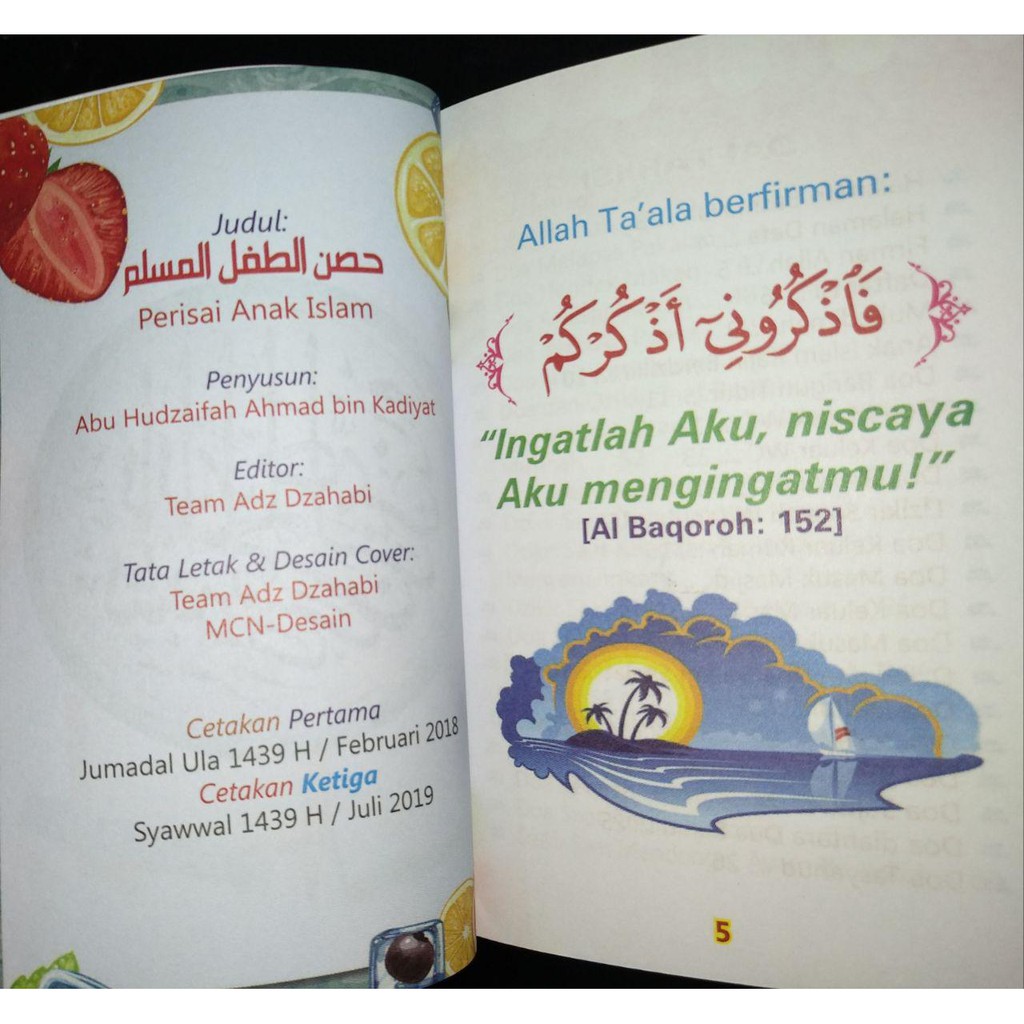 Judul:
حصن الطفل المسلم
Perisai Anak Islam
Penyusun:
Abu Hudzaifah Ahmad bin Kadiyat
Editor:
Team Adz Dzahabi
Tata Letak & Desain Cover:
Team Adz Dzahabi
MCN-Desain
Cetakan Pertama
Jumadal Ula 1439 H / Februari 2018
Cetakan Ketiga
Syawwal 1439 H / Juli 2019
Allah Ta'ala berfirman:
فَٱذْكُرُونِيٓ أَذْكُرْكُمْ
“Ingatlah Aku, niscaya
Aku mengingatmu!”
[Al Baqoroh: 152]
5